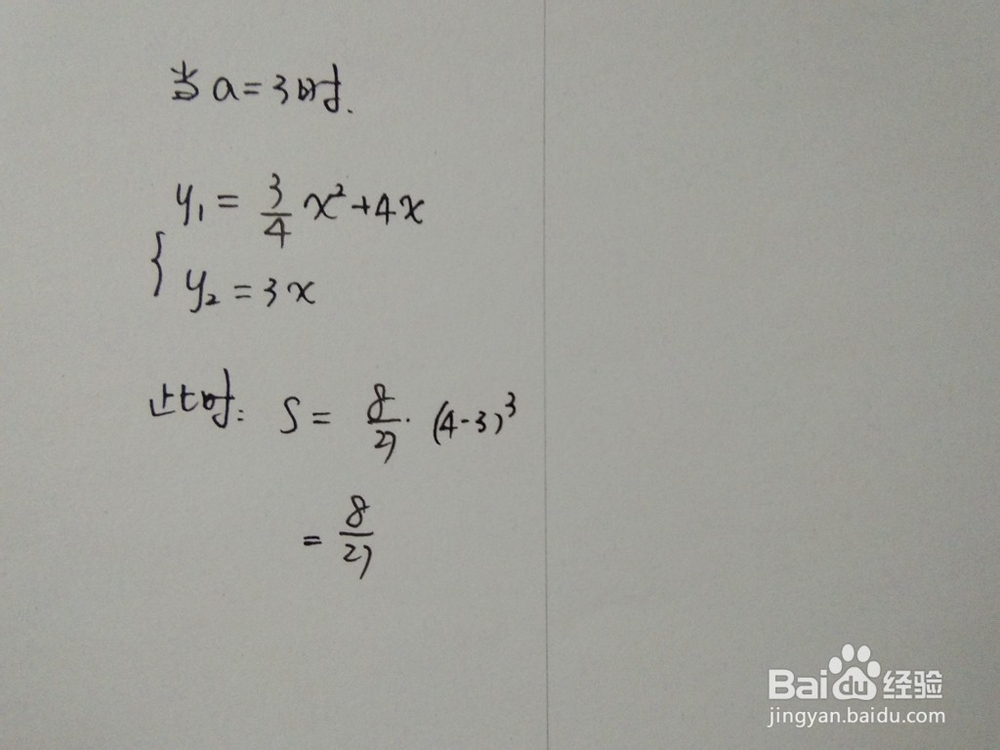 当a=3时.
y₁ = 3/4 x²+4x
{
y₂ = 3x
此时: S = 8/27 · (4-3)³
= 8/27
Baidu经验
jingyan.baidu.com